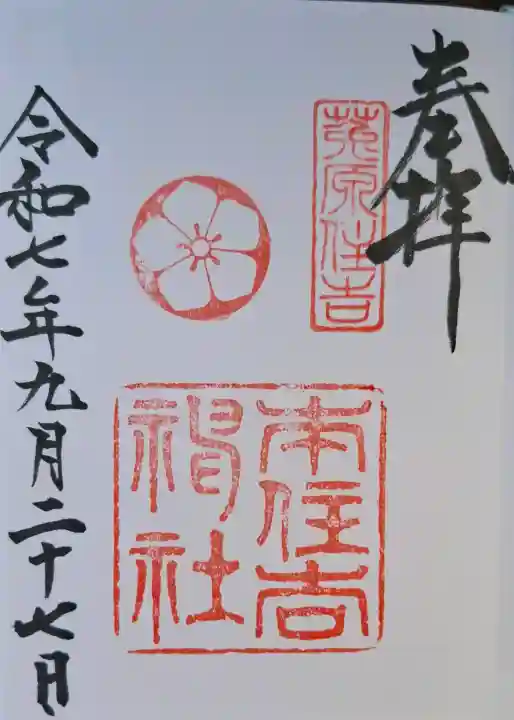 奉拝
莵原住吉
本住吉
神社
令和七年九月二十七日